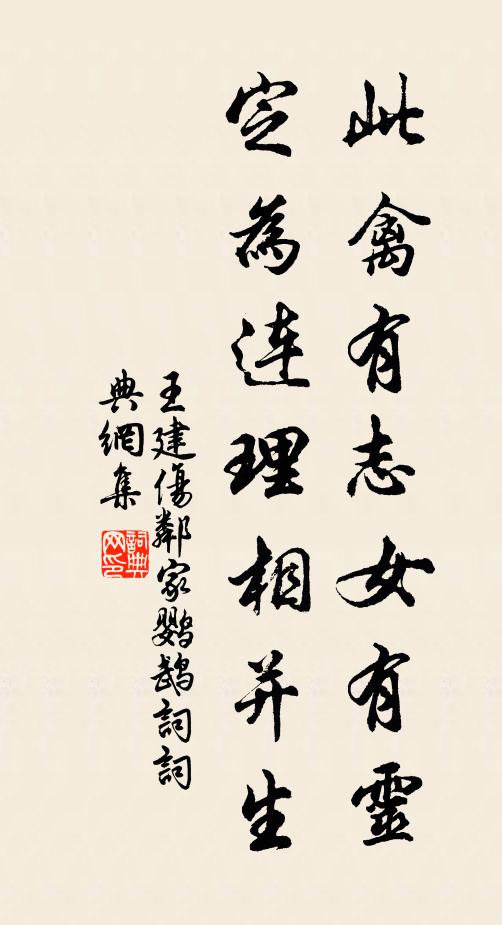 此禽有志女有靈
定為連理相并生
王建傷鄰家鸚鵡詞詞
典網集
詞典
网印